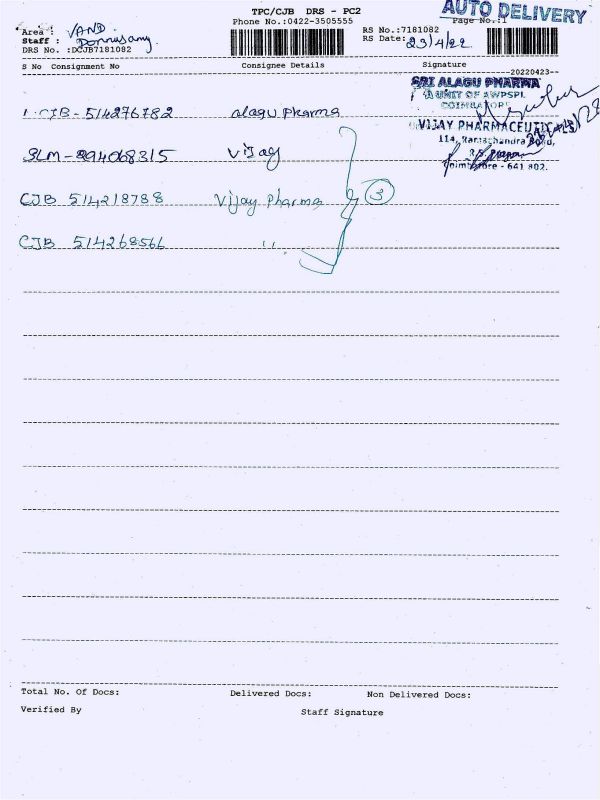 TPC/CJB DRS - PC2
AUTO DELIVERY
Phone No.:0422-3505555
Page No.:1
Area : VAND
RS No.:7181082
Staff :
RS Date: 23/4/22
DRS No. :DCJB7181082
S No Consignment No Consignee Details Signature
--20220423--
SRI ALAGU PHARMA
A UNIT OF AWPSPL
COIMBATORE
1. CJB - 514276782 alagu pharma
VIJAY PHARMACEUTICALS
114, Ramachandra Road,
SLM - 894068315 Vijay
Coimbatore - 641 002.
CJB 514218788 Vijay Pharma 3
CJB 514268566 ,,
Total No. Of Docs: Delivered Docs: Non Delivered Docs:
Verified By Staff Signature